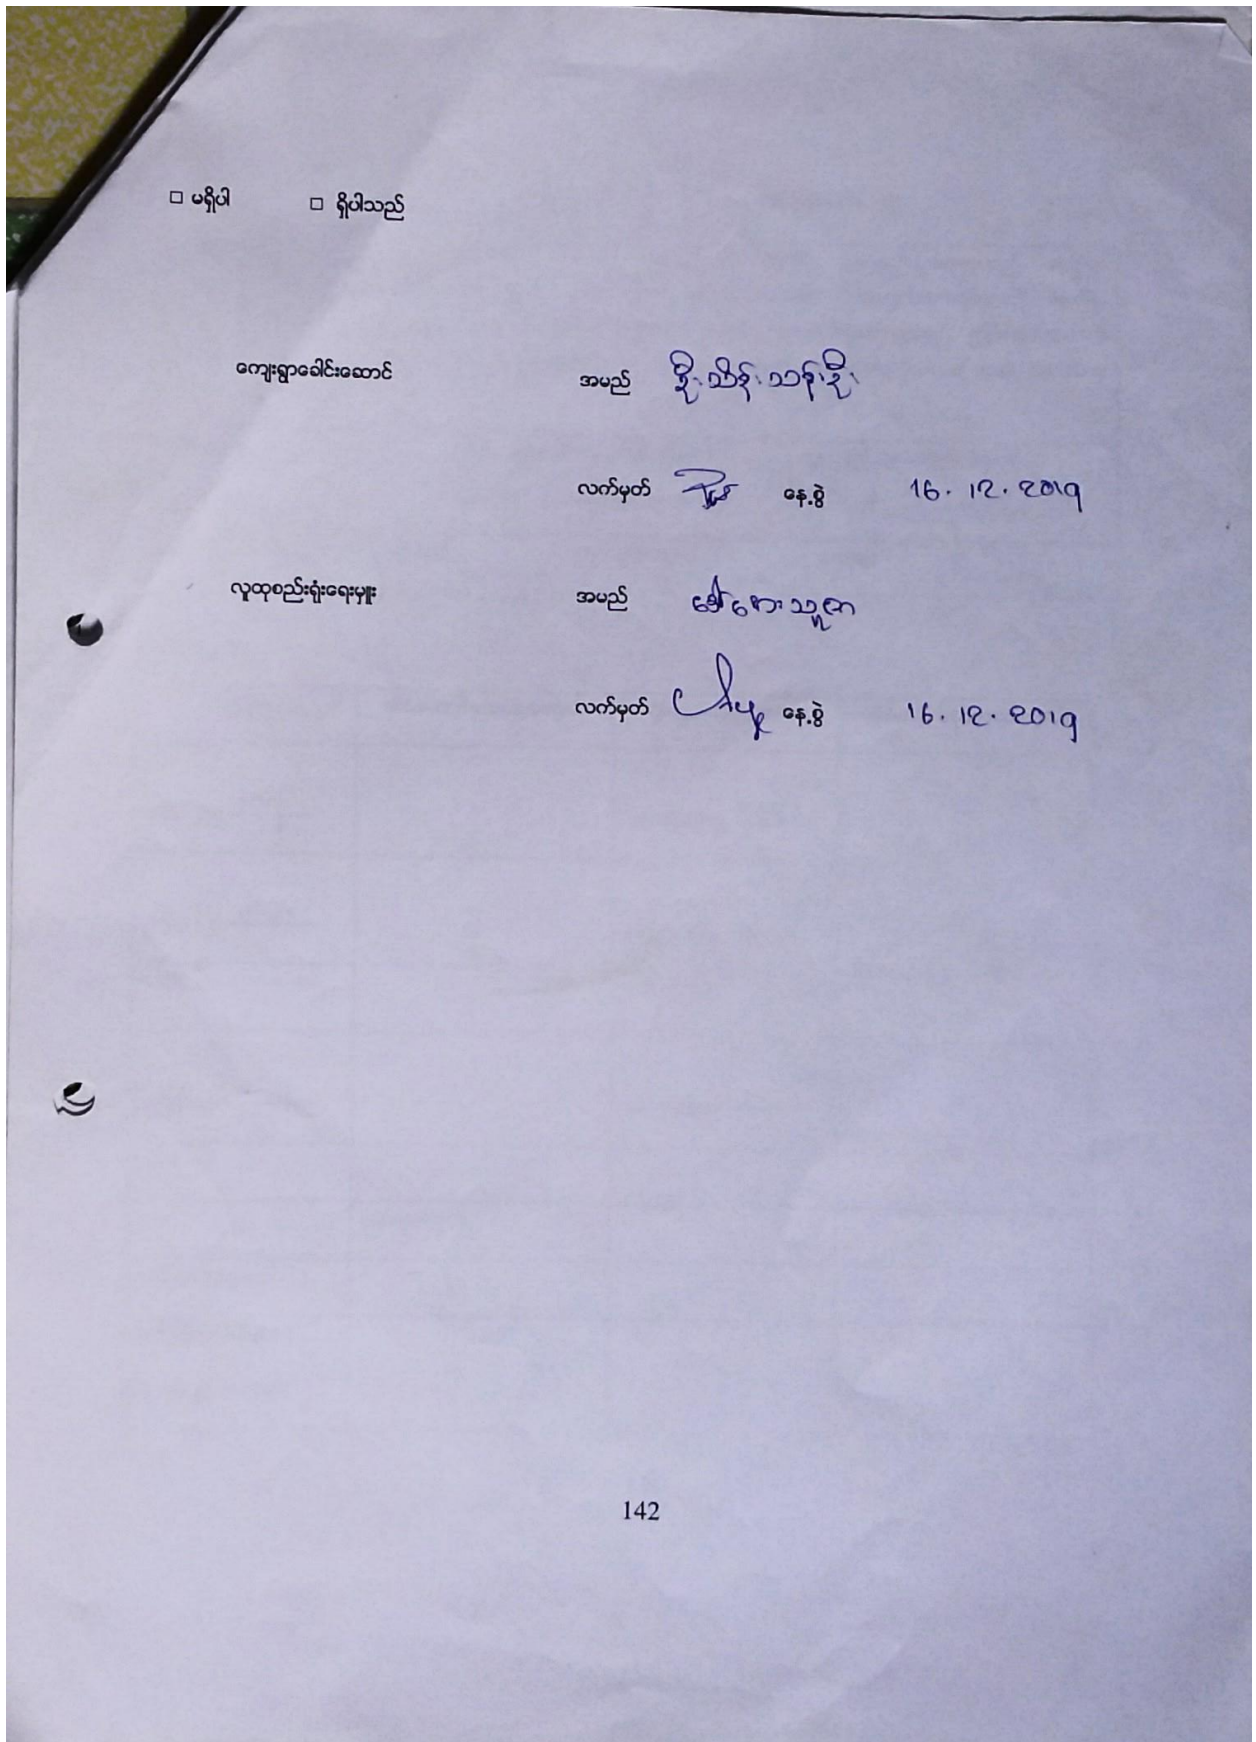 □ မရှိပါ □ ရှိပါသည်
ကျေးရွာခေါင်းဆောင် အမည် ဦးသိန်းသန်းဦး
လက်မှတ် နေ့စွဲ 16.12.2019
လူထုစည်းရုံးရေးမှူး အမည် ဒေါ်စောသူဇာ
လက်မှတ် နေ့စွဲ 16.12.2019
142